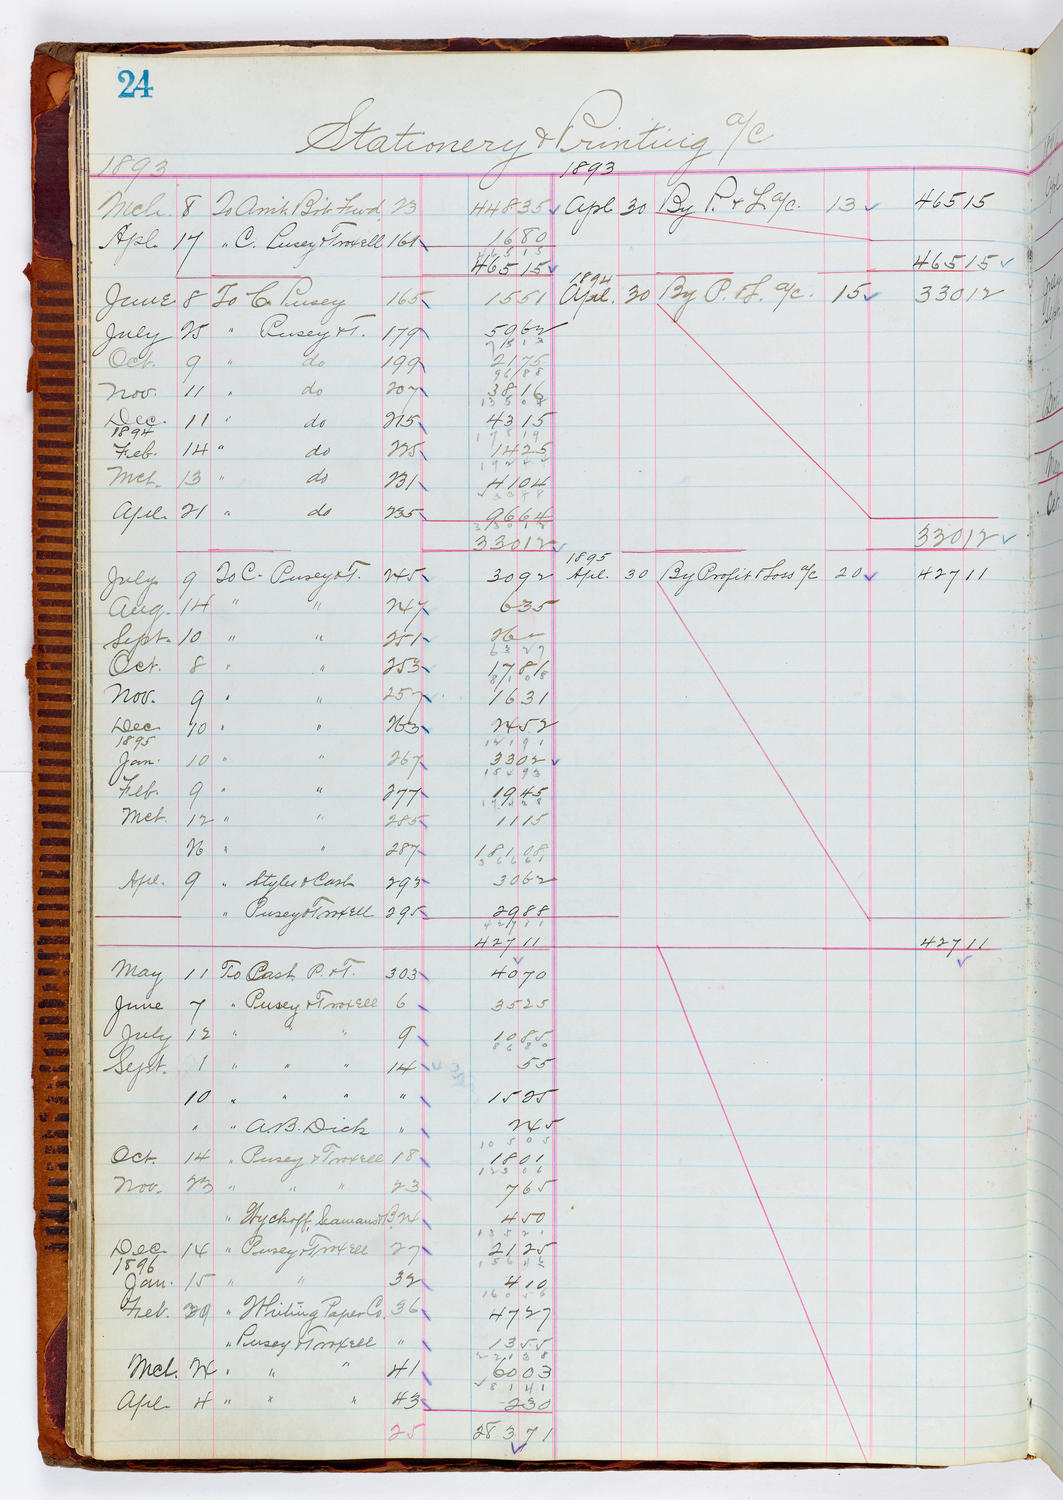 24
Stationery & Printing a/c
1893 1893
Mch. 8 To Amt. Bot. Fwd. 23 448 35 Apl 30 By P. & L. a/c. 13 465 15
Apl. 17 " C. Pusey & Troxell 161 16 80
465 15 465 15
1894
June 8 To C. Pusey 165 15 51 Apl. 30 By P. & L. a/c. 15 330 12
July 25 " Pusey & T. 179 50 62
Oct. 9 " do 199 21 75
Nov. 11 " do 207 38 16
Dec. 11 " do 215 43 15
1894
Feb. 14 " do 225 14 25
Mch. 13 " do 231 41 04
Apl. 21 " do 235 96 64
330 12 330 12
1895
July 9 To C. Pusey & T. 245 30 92 Apl. 30 By Profit & Loss a/c 20 427 11
Aug. 14 " " 247 6 35
Sept. 10 " " 251 26 –
Oct. 8 " " 253 17 81
Nov. 9 " " 257 16 31
Dec. 10 " " 263 24 52
1895
Jan. 10 " " 267 33 02
Feb. 9 " " 277 19 45
Mch. 12 " " 285 11 15
26 " " 287 181 08
Apl. 9 " Styles & Cash 293 30 62
" Pusey & Troxell 295 29 88
427 11 427 11
May 11 To Cash P. & T. 303 40 70
June 7 " Pusey & Troxell 6 35 25
July 12 " " " 9 10 85
Sept. 1 " " " 14 55
10 " " " " 15 25
" " A.B. Dick " 2 45
Oct. 14 " Pusey & Troxell 18 18 01
Nov. 23 " " " 23 7 65
" Wyckoff, Seamans & B 24 4 50
Dec. 14 " Pusey & Troxell 27 21 25
1896
Jan. 15 " " 32 4 10
Feb. 29 " Whiting Paper Co. 36 47 27
" Pusey & Troxell " 13 55
Mch. 24 " " " 41 60 03
Apl. 4 " " " 43 2 30
25 283 71